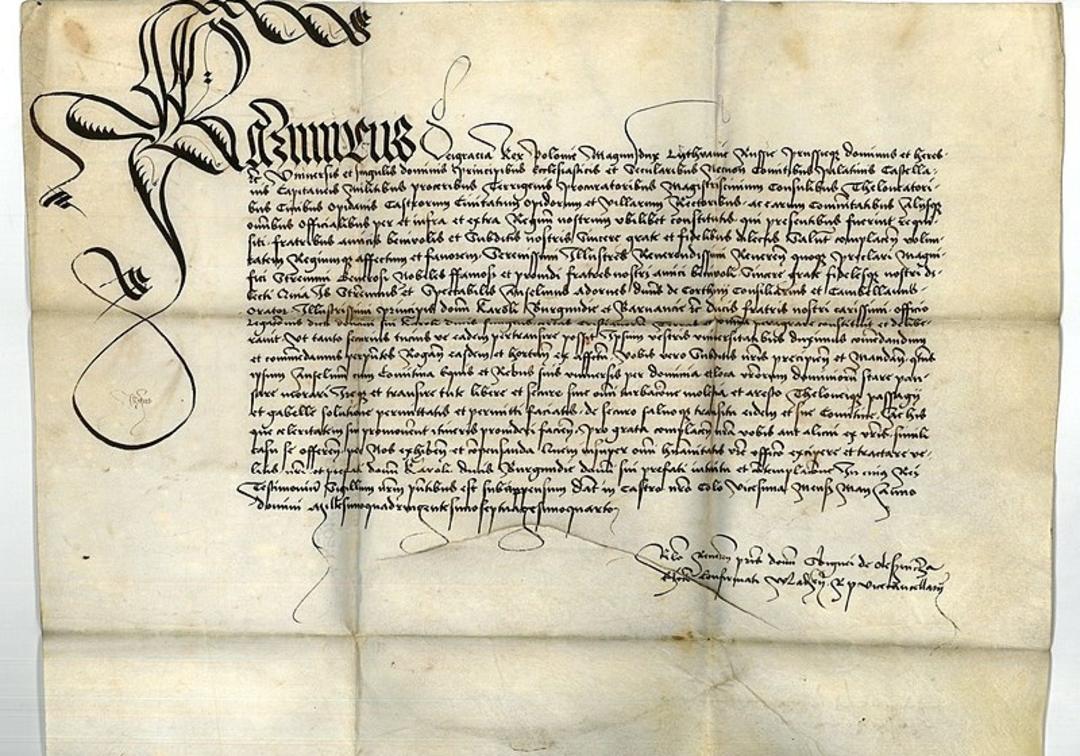 Kazimirus Deigracia Rex Polonie Magnusdux Lythwanie Russie Prussieque dominus et heres
Universis et singulis dominis principibus Ecclesiasticis et Secularibus Necnon Comitibus Palatinis Castella-
nis Capitaneis Militibus proceribus Terrigenis Procuratoribus Magistriscivium Consulibus Theloneatori-
bus Civibus Opidanis Castrorum Civitatum Opidorum et villarum Rectoribus ac earum Comunitatibus Alysque
omnibus Officialibus per et infra et extra Regnum nostrum ubilibet constitutis qui presentibus fuerint requi-
siti fratribus amicis benivolis et Subditis nostris Sincere grate et fidelibus dilectis Salutem complacen volun-
tatem Regiumque affectum et favorem Serenissimi Illustres Reverendissimi Reveren quoque preclari Magni-
fici Strennui Generosi Nobiles ffamosi et providi fratres nostri amici benivoli Sincere grate fidelesque nostri di-
lecti Strennuus et Spectabilis Anselmus Adornes dnus de Corthuy Consiliarius et Cambellanus
Orator Illustrissimi principis domini Karoli Burgundie et Barbancie etc Ducis fratris nostri carissimi officio
et peragrare constituit et delibe-
ravit Ut tanto securius tucius ve eadem pertransire possit Ipsum vestris universitatibus duximus comendandum
et commendamus per pntes Rogan easdem et hortan ex affectu vobis vero Subditis nris precipien et Mandan qtus
ipsum Anselmum cum Comitiva Equis et Rebus suis universis per dominia et loca vrorum dominiorum stare pau-
sare morari Ireque et transire tute libere et secure sine omni turbacione molestia et aresto Theloneique passagy
et gabelle solutione permittatis et permitti faciatis de securo salvoque transitu eidem et sue Comitive Ac his
que celeritatem sui promoveant itineris provideri facien Pro grata complacen nra vobis aut alicui ex vris simili
casu se offeren per Nos exhiben et compensanda insuper omni humanitatis vre officio excipere et tractare ve-
litis nri et domini Karoli ducis Burgundie domini sui prefati intuitu et contemplacione In cuius Rei
Testimonium Sigillum nrum pntibus est subappensum Dat in Castro nro Colo vicesima Mensis May Anno
domini Millesimoquadringentesimoseptuagesimoquarto
Rlo Reveren pris domini Sbignei de Olesnicza
Confirmati Wladzen R p vicecancellary